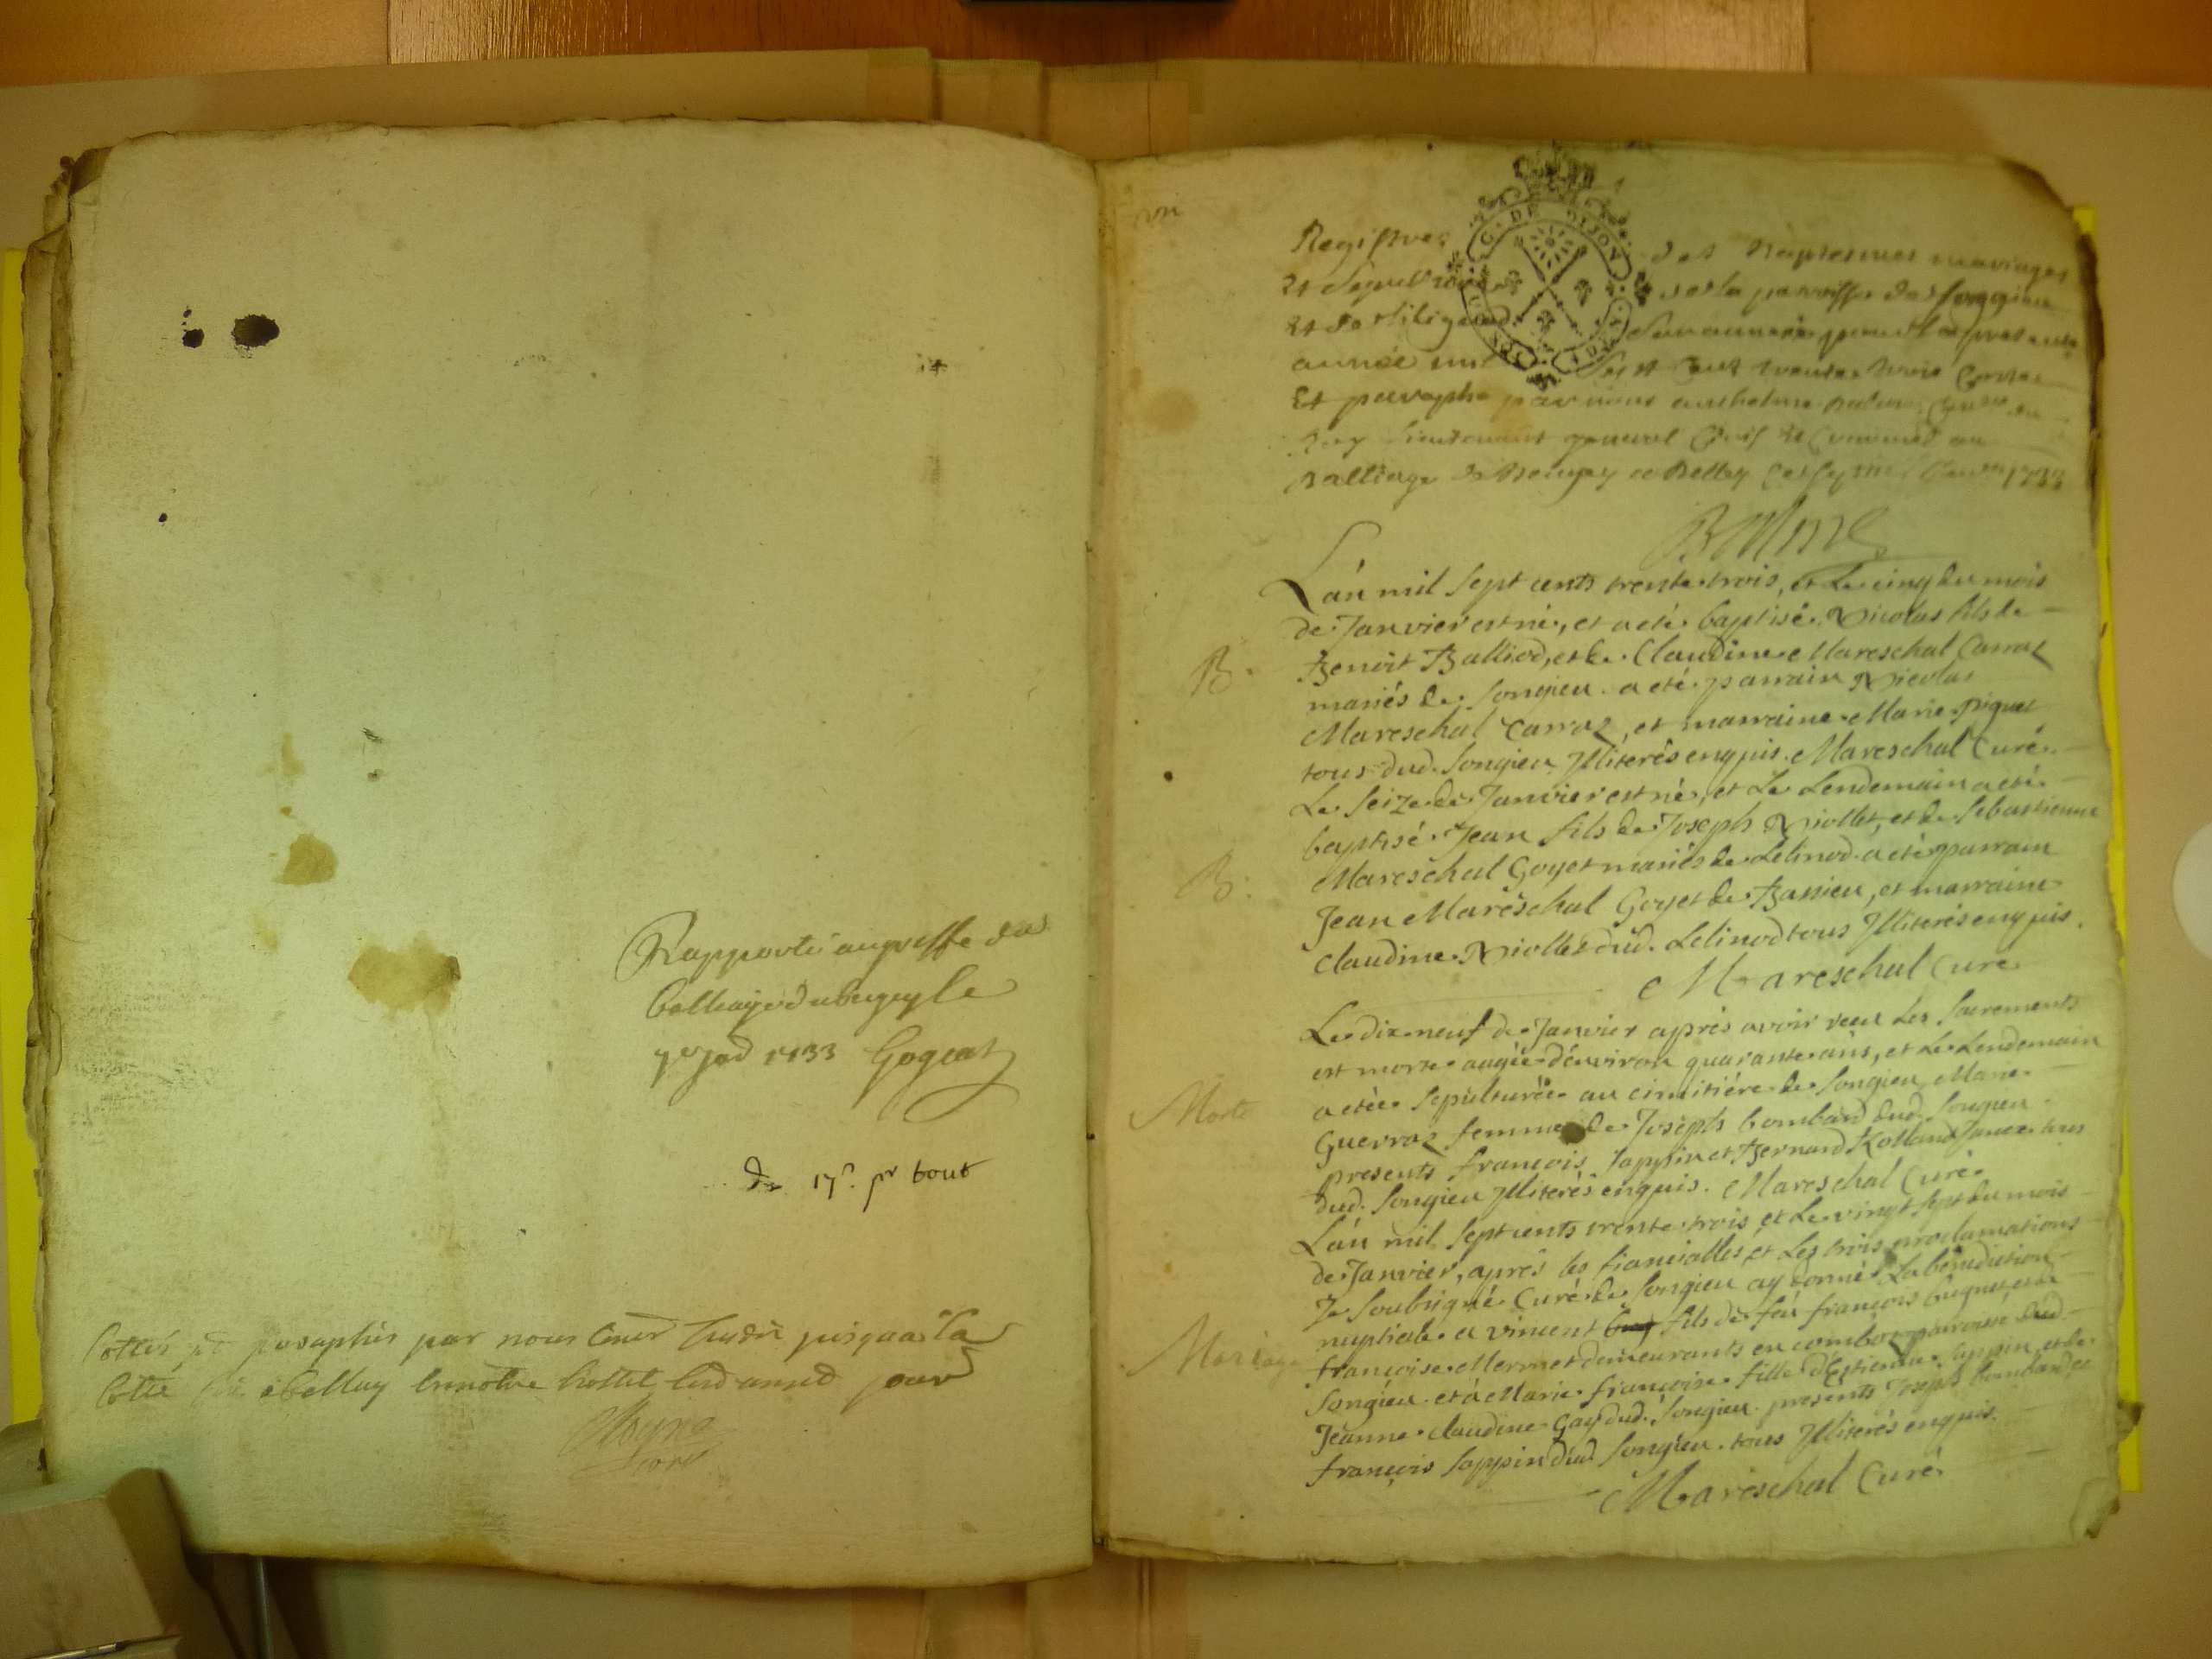 Rapporté au greffe du
balliage du bugey le
1733 Gogeat
17 pr tout
Cottés et paraphés par nous jusqua la
Cotte a Belley hostel jour
un
Registre des Baptesmes mariages
Et Sepultures de la paroisse de Songieu
Et de Siligneu Savoir pour la presente
année mil Sept Cent trente trois Cottés
Et paraphé par nous anthelme Balme du
Roy Lieutenant general Civil et Criminel au
Balliage de Beugey a Belley 1733
G. DE DIJON
Balme
L'an mil Sept cents trente trois, et Le cinq du mois
de Janvier est né, et a eté baptisé Nicolas fils de
B. Benoit Balliod, et de Claudine Mareschal Carraz
mariés de Songieu. a eté parrain Nicolas
Mareschal Carraz, et marraine Marie piquet
tous dud. Songieu Illiterés enquis. Mareschal Curé.
Le Seize de Janvier est né, et Le Lendemain a eté
baptisé Jean fils de Joseph Niollet, et de Sebastienne
B. Mareschal Goyet mariés de Lelinod. a eté parrain
Jean Maréschal Goyet de Bassieu, et marraine
Claudine Niollet dud. Lelinod tous Illiterés enquis.
Mareschal Curé
Le dix neuf de Janvier aprés avoir receu Les Sacrements
est morte aagée d'environ quarante ans, et Le Lendemain
Morte a etée Sepulturée au cimitiére de Songieu, Marie
Guerraz femme de Joseph bombard dud. Songieu.
presents françois Sappin et Bernard Rolland Jance tous
dud. Songieu Illiterés enquis. Mareschal Curé.
L'an mil Sept cents trente trois, et Le vingt Sept du mois
de Janvier, aprés les fiancialles, et Les trois proclamations
Je Soubsigné Curé de Songieu ay donné La bénédiction
nuptiale a vincent fils de feu françois bugnet, et de
Mariage françoise Mermet demeurants en combe paroisse dud.
Songieu. et à Marie françoise fille d'Estienne Sappin, et de
Jeanne Claudine Gay dud. Songieu. presents Joseph bombard, et
françois Sappin dud. Songieu. tous Illiterés enquis.
Mareschal Curé